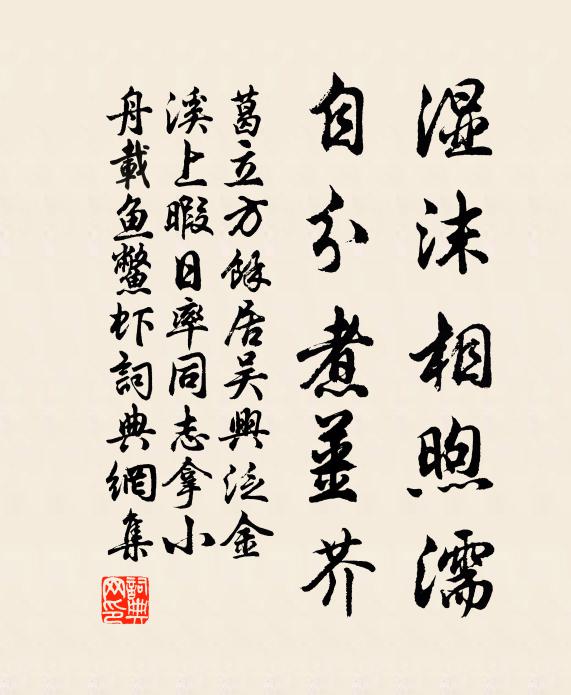 湿沫相煦濡
自分煮薑芥
葛立方餘居吳興泛金
溪上暇日率同志拿小
舟載魚鱉虾詞典網集
詞典网印